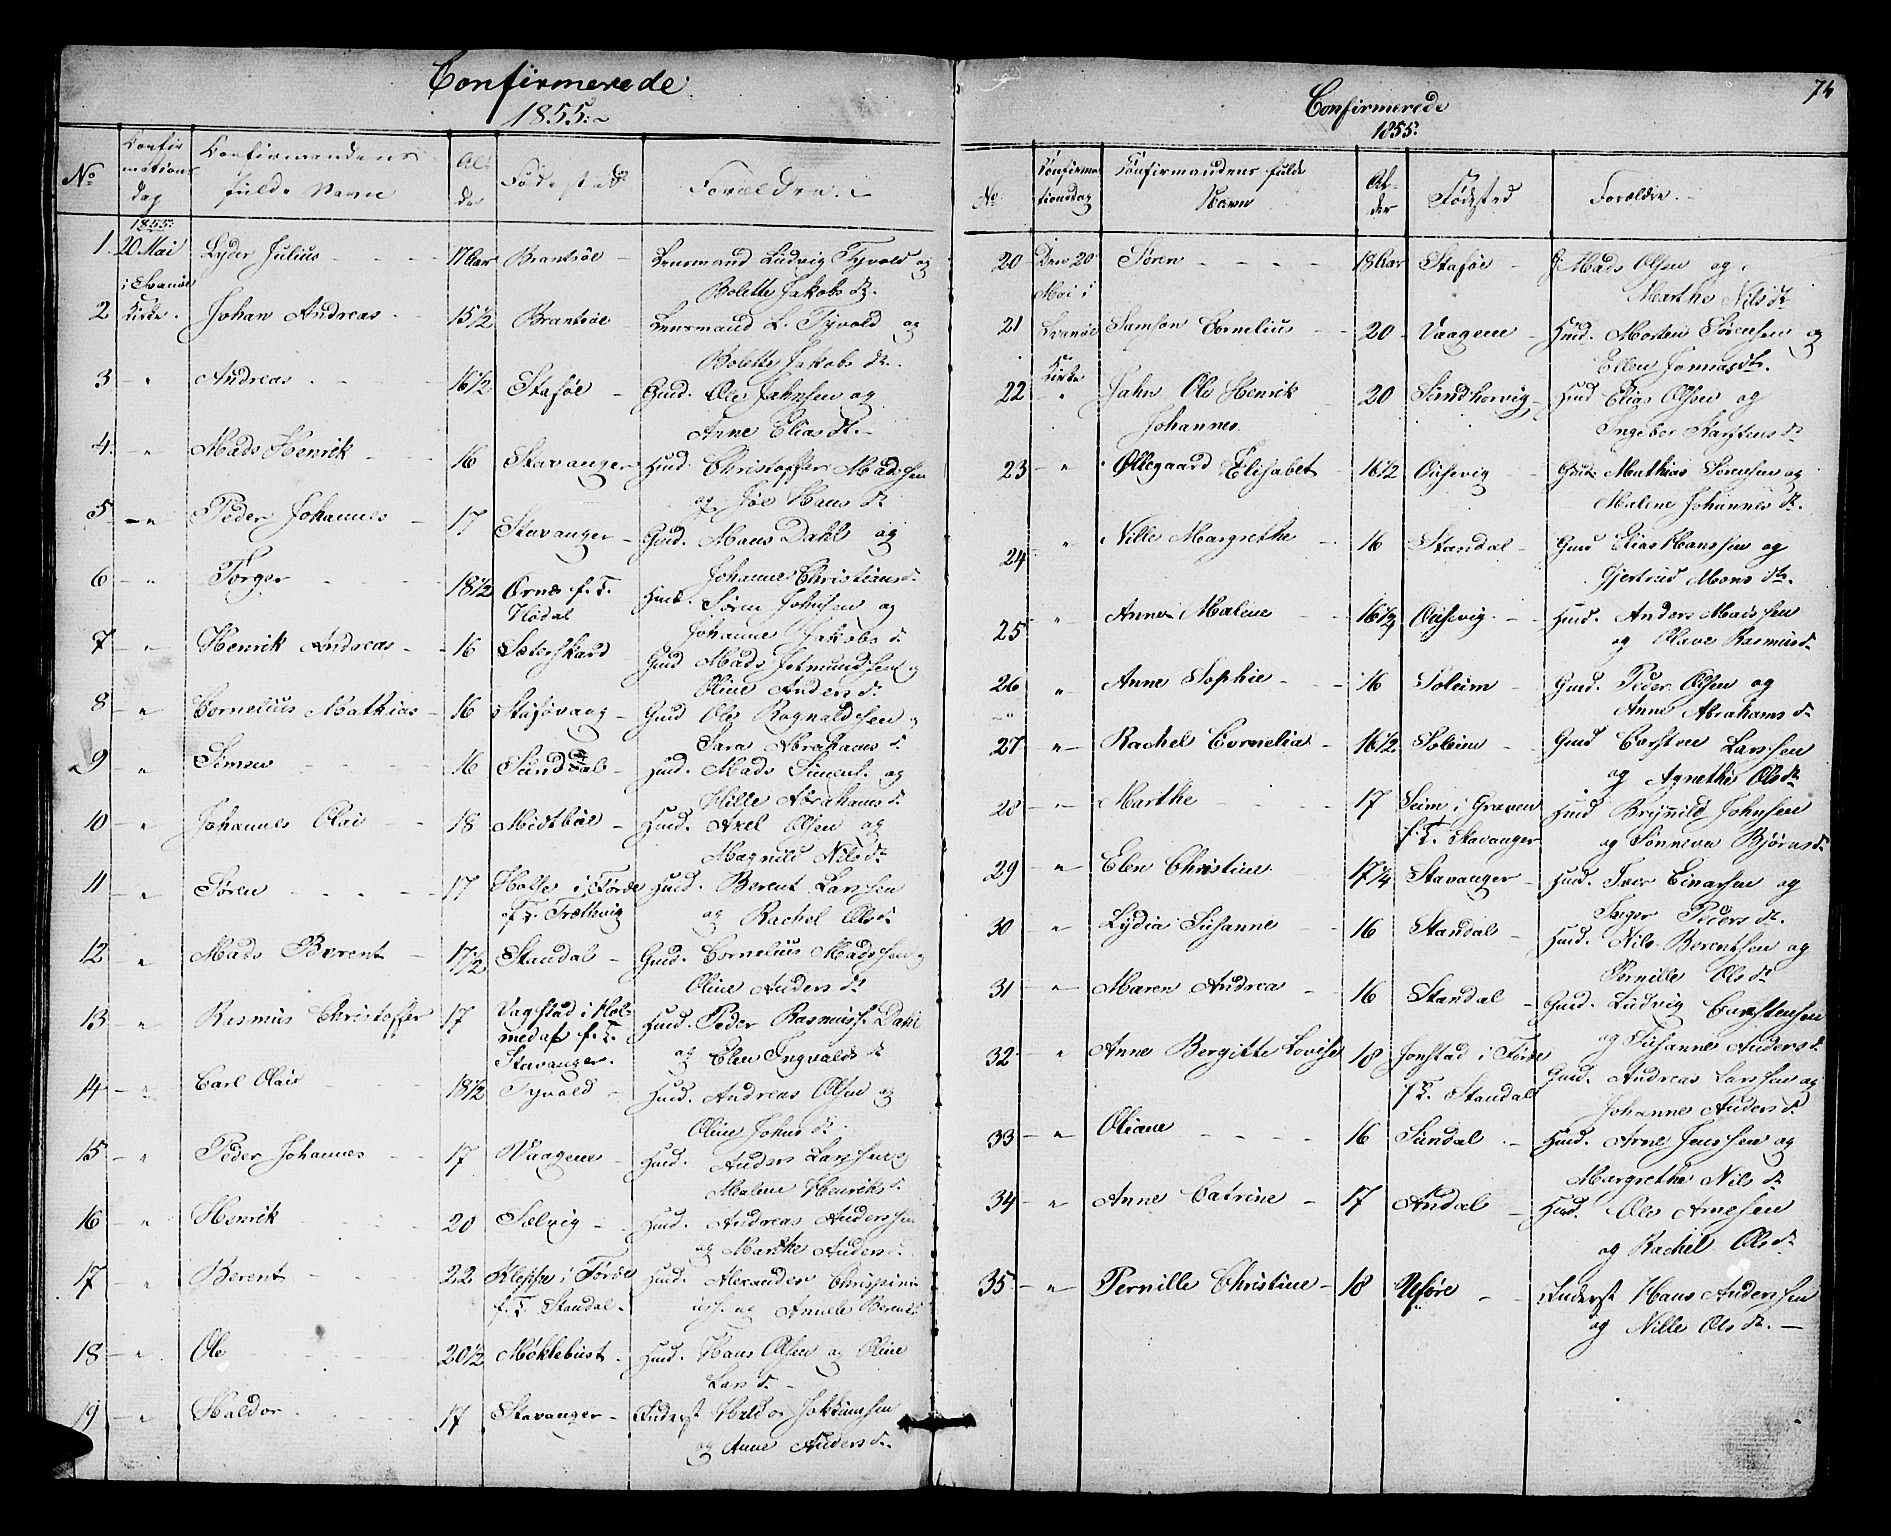 Confirmerede
1855.
No
Confir
mations
dag
Confirmandens
fulde Navn
Al
der
Fødested
Forældre.
1855.
1. 20 Mai Lyder Julius 17 Aar Brantsøe Lensmand Ludvig Tyvold og
i Svanøe Bolette Jakobs dt.
2 Kirke. Johan Andreas 15½ Brantsøe Lensmand L. Tyvold og
Bolette Jakobs dt.
3 " Andreas 16½ Staføe Gmd. Ole Jahnsen og
Anne Elias dt.
4. " Mads Henrik 16 Stavanger Hmd. Christoffer Madssen
og Hans dt
5 " Peder Johannes 17 Stavanger Gmd. Mons Dahl og
Johanne Christians d.
6 " Torger 18½ Ornæs f. T. Hmd. Søren Johnsen og
Hødal
Johanne Jakobs d.
7 " Henrik Andreas 16 Sæterskard Gmd Mads Jetmundssen og
Oline Anders dt
8 " Cornelius Mathias 16 Staføvang Gmd Ole Ragnaldssen og
Sara Abrahams d.
9 " Simen 16 Sunddal Hmd. Mads Simens. og
Hille Abrahams d.
10 " Johannes Olai 18 Midtbøe Hmd. Axel Olsen og
Magnild Nils dt
11 " Søren 17 Holse i Førde Hmd. Berent Larssen
f. T. Træthvig og Rachel Ols dt
12 " Mads Berent 17½ Standal Gmd. Cornelius Madssen og
Oline Anders dt
13 " Rasmus Christoffer 17 Vagstad i Hol- Hmd. Peder Rasmuss. Dahl
medal f. T. og Elen Ingvalds dt
Stavanger.
14 " Carl Olai 18½ Tyvold Hmd. Andreas Olsen og
Oline Johns dt.
15 " Peder Johannes 17 Vaagene Hmd. Anders Larssen og
Malene Henriks d.
16 " Henrik 20 Sælvig Hmd. Andreas Anderssen
og Marthe Anders d.
17 " Berent 22 Kleppe i Førde Hmd. Alexander
f. T. Standal. og
18 " Ole 20½ Møklebust Hmd. Hans Olsen og Oline
Lars d.
19 " Haldor 17 Stavanger Inderst Haldor Jokkumsen
og Anne Anders d.
74
Confirmerede
1855.
No
Confirma
tionsdag
Confirmandens fulde
Navn
Al-
der
Fødested
Forældre.
20 Den 20 Søren 18 Aar Staføe Mads Olsen og
Mai i Marthe Nils dt
21 Svanøe Samson Cornelius 20 Vaagene Hmd. Morten Sørensen og
Kirke Ellen Jonnas dt.
22 " Jahn Ole Henrik 20 Sandhorvig Hmd Elias Olsen og
Johannes. Ingebor Karstens dt
23 " Øllegaard Elisabet 16½ Ousevig Gmd Mathias Sørensen og
Malene Johannes dt.
24 " Nille Margrethe 16 Standal Gmd Elias Hanssen og
Gjertrud Mons dt.
25 " Anne Malene 16½ Ousevig Hmd. Anders Madssen
og Olave Rasmus d.
26 " Anne Sophie 16 Soleim Gmd. Peder Olsen og
Anne Abrahams d.
27 " Rachel Cornelia 16½ Soleim Gmd Carsten Larssen
og Agnethe Ols dt
28 " Marthe 17 Seim i Graven Hmd Brynild Johnsen
f. T. Stavanger og Sønneva Bjørns d.
29 " Elen Christine 17¼ Stavanger Hmd. Iver Einarsen og
Inger Peders dt.
30 " Lydia Susanne 16 Standal Hmd. Nils Berentsen og
Pernille Ols dt
31 " Maren Andrea 16 Standal Gmd. Ludvig Carstensen
og Susanne Anders d.
32 " Anne Bergitte Lovise 18 Jonstad i Førde Gmd. Andreas Larssen og
f. T. Standal Johanne Anders d.
33 " Oliane 16 Sundal Hmd. Arne Jenssen og
Margrethe Nils dt
34 " Anne Catrine 17 Aadal Hmd. Ole Arnesen
og Rachel Ols dt
35 " Pernille Christine 18 Uføre Inderst Hans Anderssen
og Nille Ols dt.